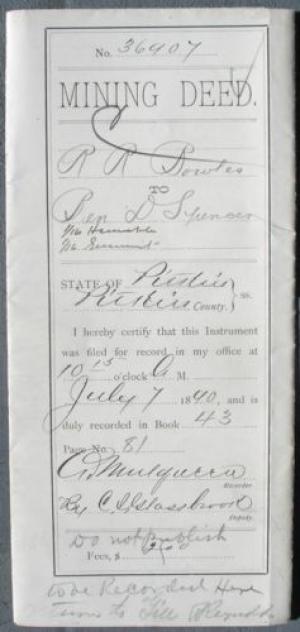 No. 36907
MINING DEED.
R R Bowles
TO
Ben D Spencer
STATE OF Pitkin
Pitkin County. } ss.
I hereby certify that this Instrument
was filed for record in my office at
10 15 o'clock A M.
July 7 1890, and is
duly recorded in Book 43
Page No. 81
Recorder
By C S Glassbrook
Deputy.
Do not publish
Fees, $
to be Recorded Here